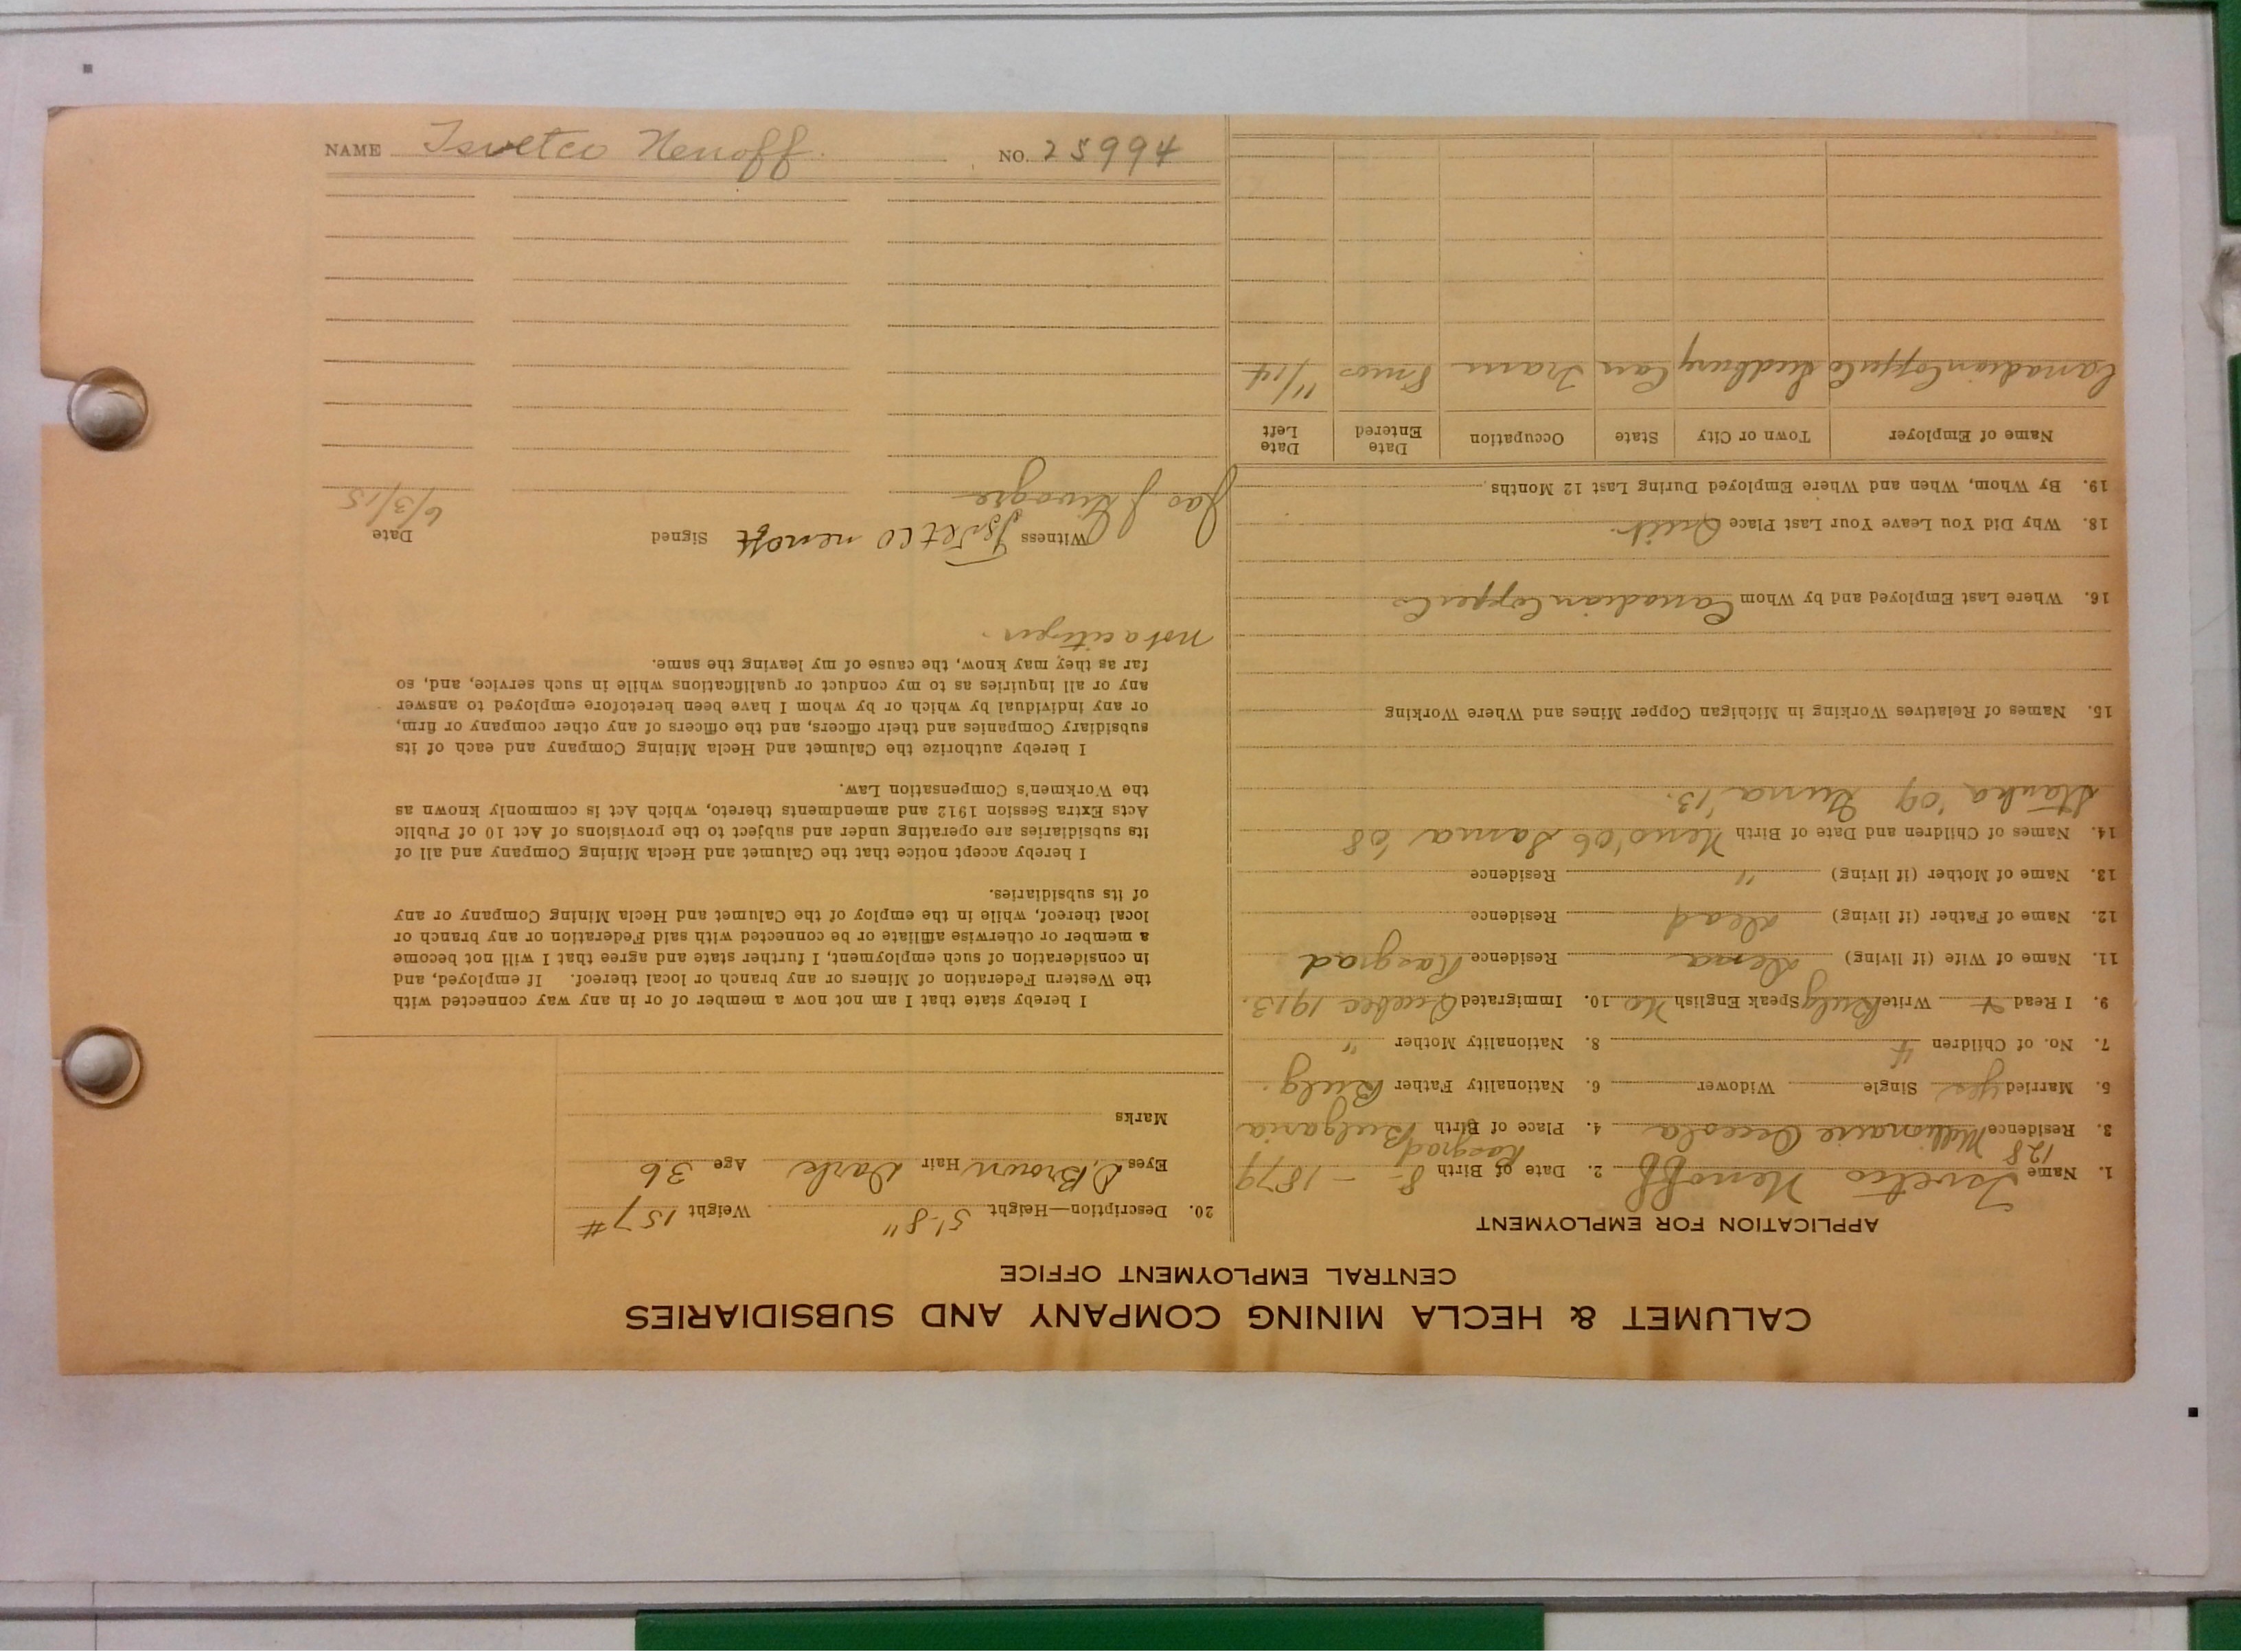 CALUMET & HECLA MINING COMPANY AND SUBSIDIARIES
CENTRAL EMPLOYMENT OFFICE
APPLICATION FOR EMPLOYMENT
1. Name Tsvetco Nenoff 2. Date of Birth 8 - 1879
128 Rasgrad
3. Residence Millionaire Osceola 4. Place of Birth Bulgaria
5. Married yes Single Widower 6. Nationality Father Bulg.
7. No. of Children 4 8. Nationality Mother "
9. I Read & Write Bulg Speak English No 10. Immigrated Quebec 1913.
11. Name of Wife (if living) Residence Rasgrad
12. Name of Father (if living) dead Residence
13. Name of Mother (if living) " Residence
14. Names of Children and Date of Birth Neno '06 '08
'09 '13.
15. Names of Relatives Working in Michigan Copper Mines and Where Working
16. Where Last Employed and by Whom Canadian Copper Co
18. Why Did You Leave Your Last Place Quit.
19. By Whom, When and Where Employed During Last 12 Months
Name of Employer Town or City State Occupation Date Entered Date Left
Canadian Copper Co Sudbury Can Tram 8 mos 11/14
20. Description—Height 5'-8" Weight 157#
Eyes D. Brown Hair Dark Age 36
Marks
I hereby state that I am not now a member of or in any way connected with
the Western Federation of Miners or any branch or local thereof. If employed, and
in consideration of such employment, I further state and agree that I will not become
a member or otherwise affiliate or be connected with said Federation or any branch or
local thereof, while in the employ of the Calumet and Hecla Mining Company or any
of its subsidiaries.
I hereby accept notice that the Calumet and Hecla Mining Company and all of
its subsidiaries are operating under and subject to the provisions of Act 10 of Public
Acts Extra Session 1912 and amendments thereto, which Act is commonly known as
the Workmen's Compensation Law.
I hereby authorize the Calumet and Hecla Mining Company and each of its
subsidiary Companies and their officers, and the officers of any other company or firm,
or any individual by which or by whom I have been heretofore employed to answer
any or all inquiries as to my conduct or qualifications while in such service, and, so
far as they may know, the cause of my leaving the same.
not a citizen.
Witness Tsvetco nenoff Signed Date
Jas J 6/3/15
NAME Tsvetco Nenoff. NO. 25994